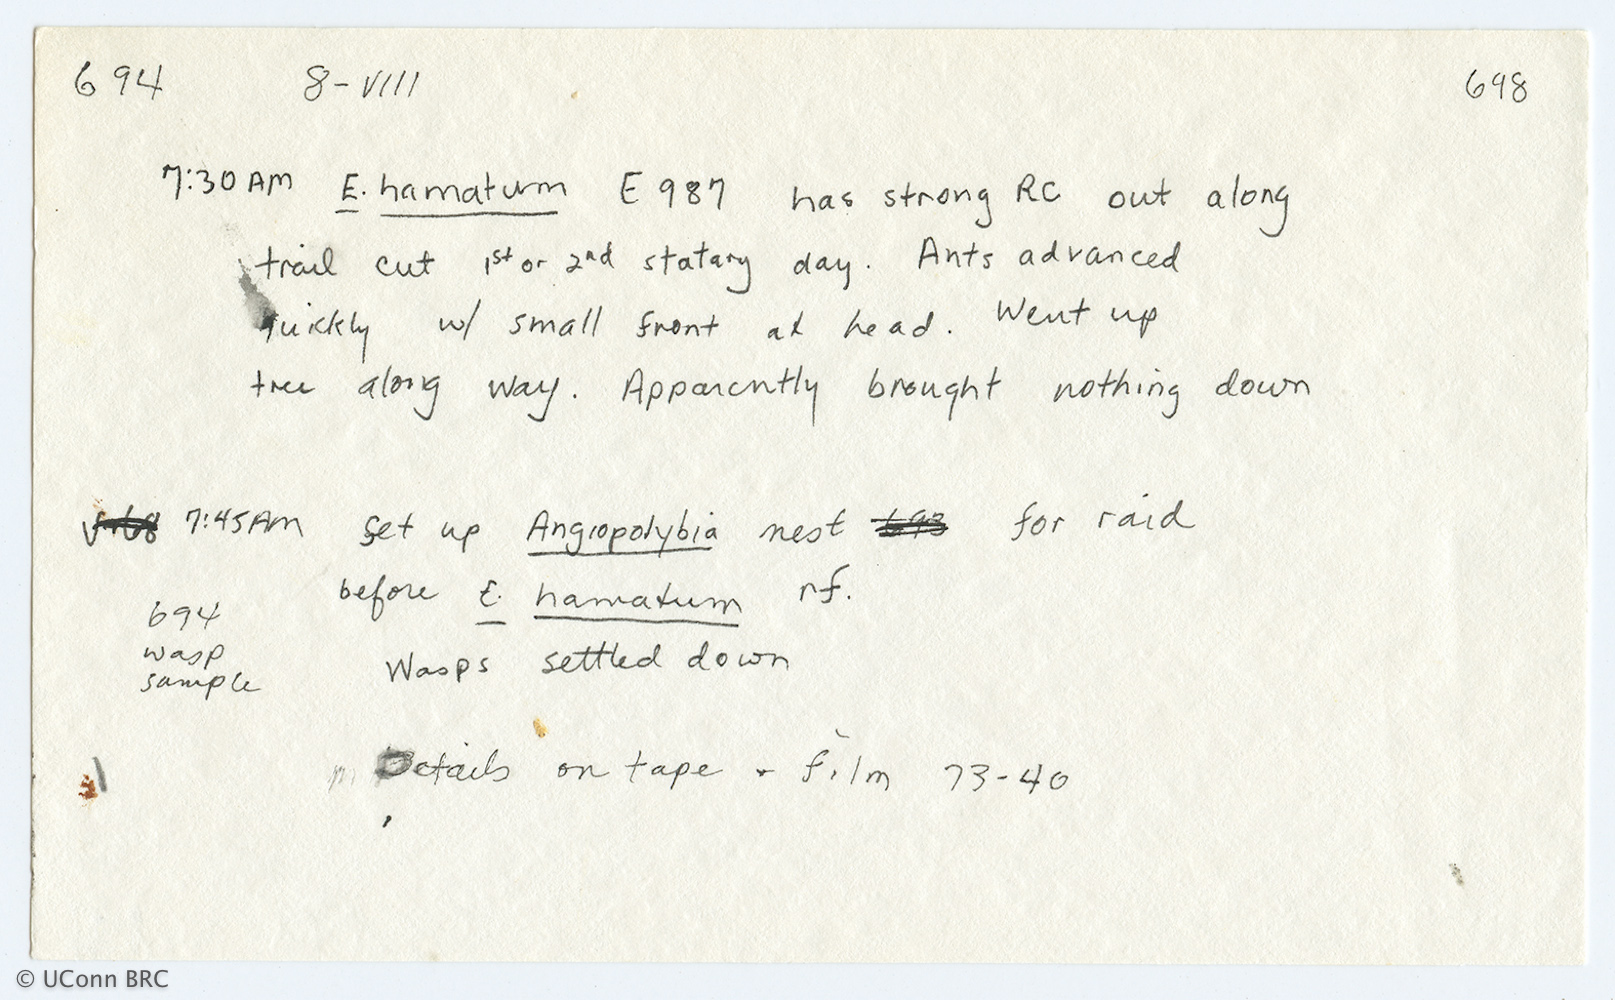 694 8-VIII 698
7:30 AM E. hamatum E 987 has strong RC out along
trail cut 1st or 2nd statary day. Ants advanced
quickly w/ small front at head. Went up
tree along way. Apparently brought nothing down
7:45 AM Set up Angiopolybia nest 693 for raid
before E. hamatum rf.
694
wasp
sample
Wasps settled down
Details on tape + film 73-40
© UConn BRC